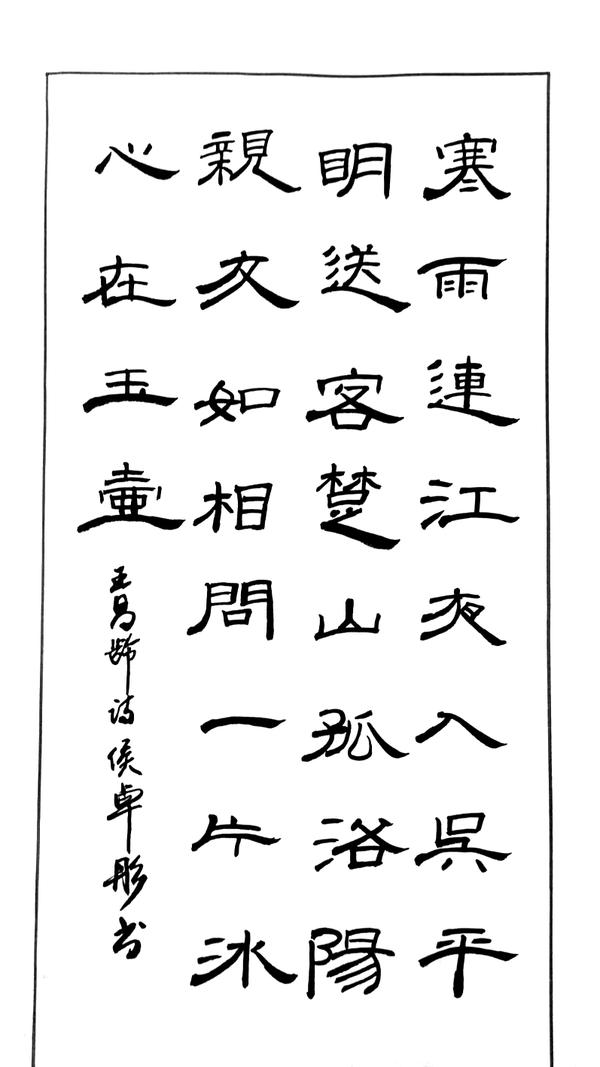 寒雨連江夜入吳平
明送客楚山孤洛陽
親友如相問一片冰
心在玉壺
王昌龄诗侯卓彤书